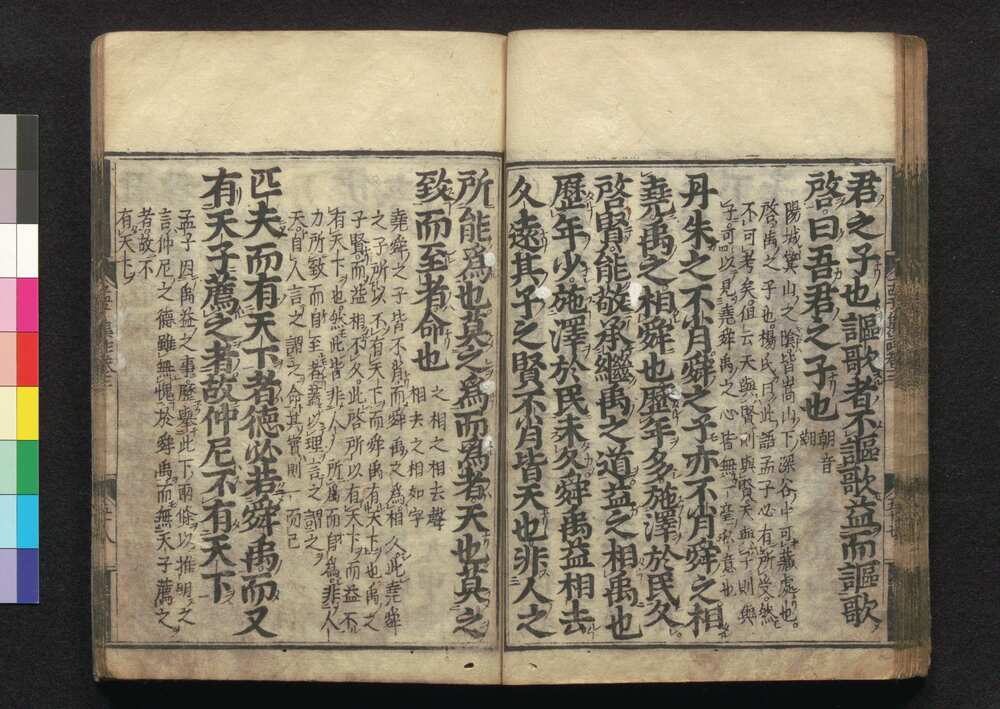 君之子也謳歌者不謳歌益而謳歌
啓曰吾君之子也
朝音
朝
陽城箕山之陰皆嵩山下深谷中可藏處也
啓禹之子也楊氏曰此語孟子必有所受然
不可考矣但云天與賢則與賢天與子則與
子可以見堯舜禹之心皆無一毫私意也
丹朱之不肖舜之子亦不肖舜之相
堯禹之相舜也歷年多施澤於民久
啓賢能敬承繼禹之道益之相禹也
歷年少施澤於民未久舜禹益相去
久遠其子之賢不肖皆天也非人之
所能爲也莫之爲而爲者天也莫之
致而至者命也
之相之相去聲
相去之相如字
堯舜之子皆不肖而舜禹之爲相久此堯舜
之子所以不有天下而舜禹有天下也禹之
子賢而益相不久此啓所以有天下而益不
有天下也然此皆非人力所爲而自爲非人
力所致而自至者蓋以理言之謂之
天自人言之謂之命其實則一而已
匹夫而有天下者德必若舜禹而又
有天子薦之者故仲尼不有天下
孟子因禹益之事歷舉此下兩條以推明之
言仲尼之德雖無愧於舜禹而無天子薦之
者故不
有天下